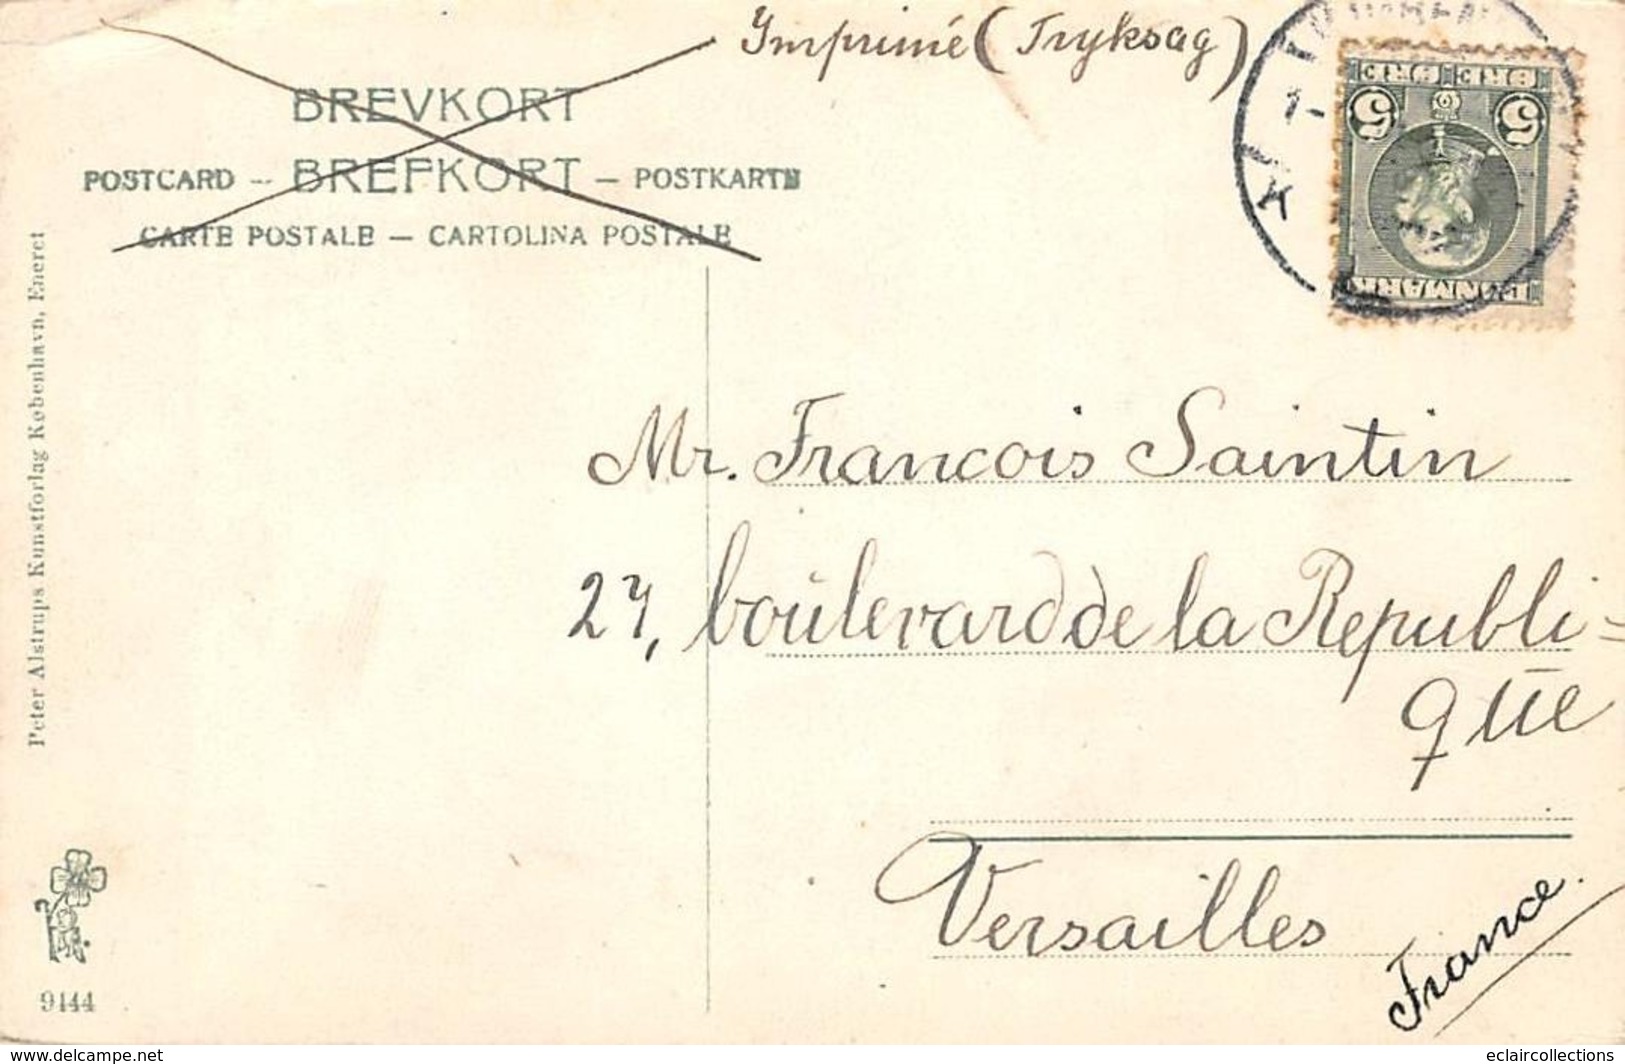 Imprimé (Tryksag)
BREVKORT
POSTCARD -- BREFKORT — POSTKARTE
CARTE POSTALE — CARTOLINA POSTALE
5 ØRE 5 ØRE
DANMARK
1-
K
Peter Alstrups Kunstforlag København, Eneret
Mr. Francois Saintin
27, boulevard de la Republi=
que
Versailles
France.
9144
www.delcampe.net
eclaircollections